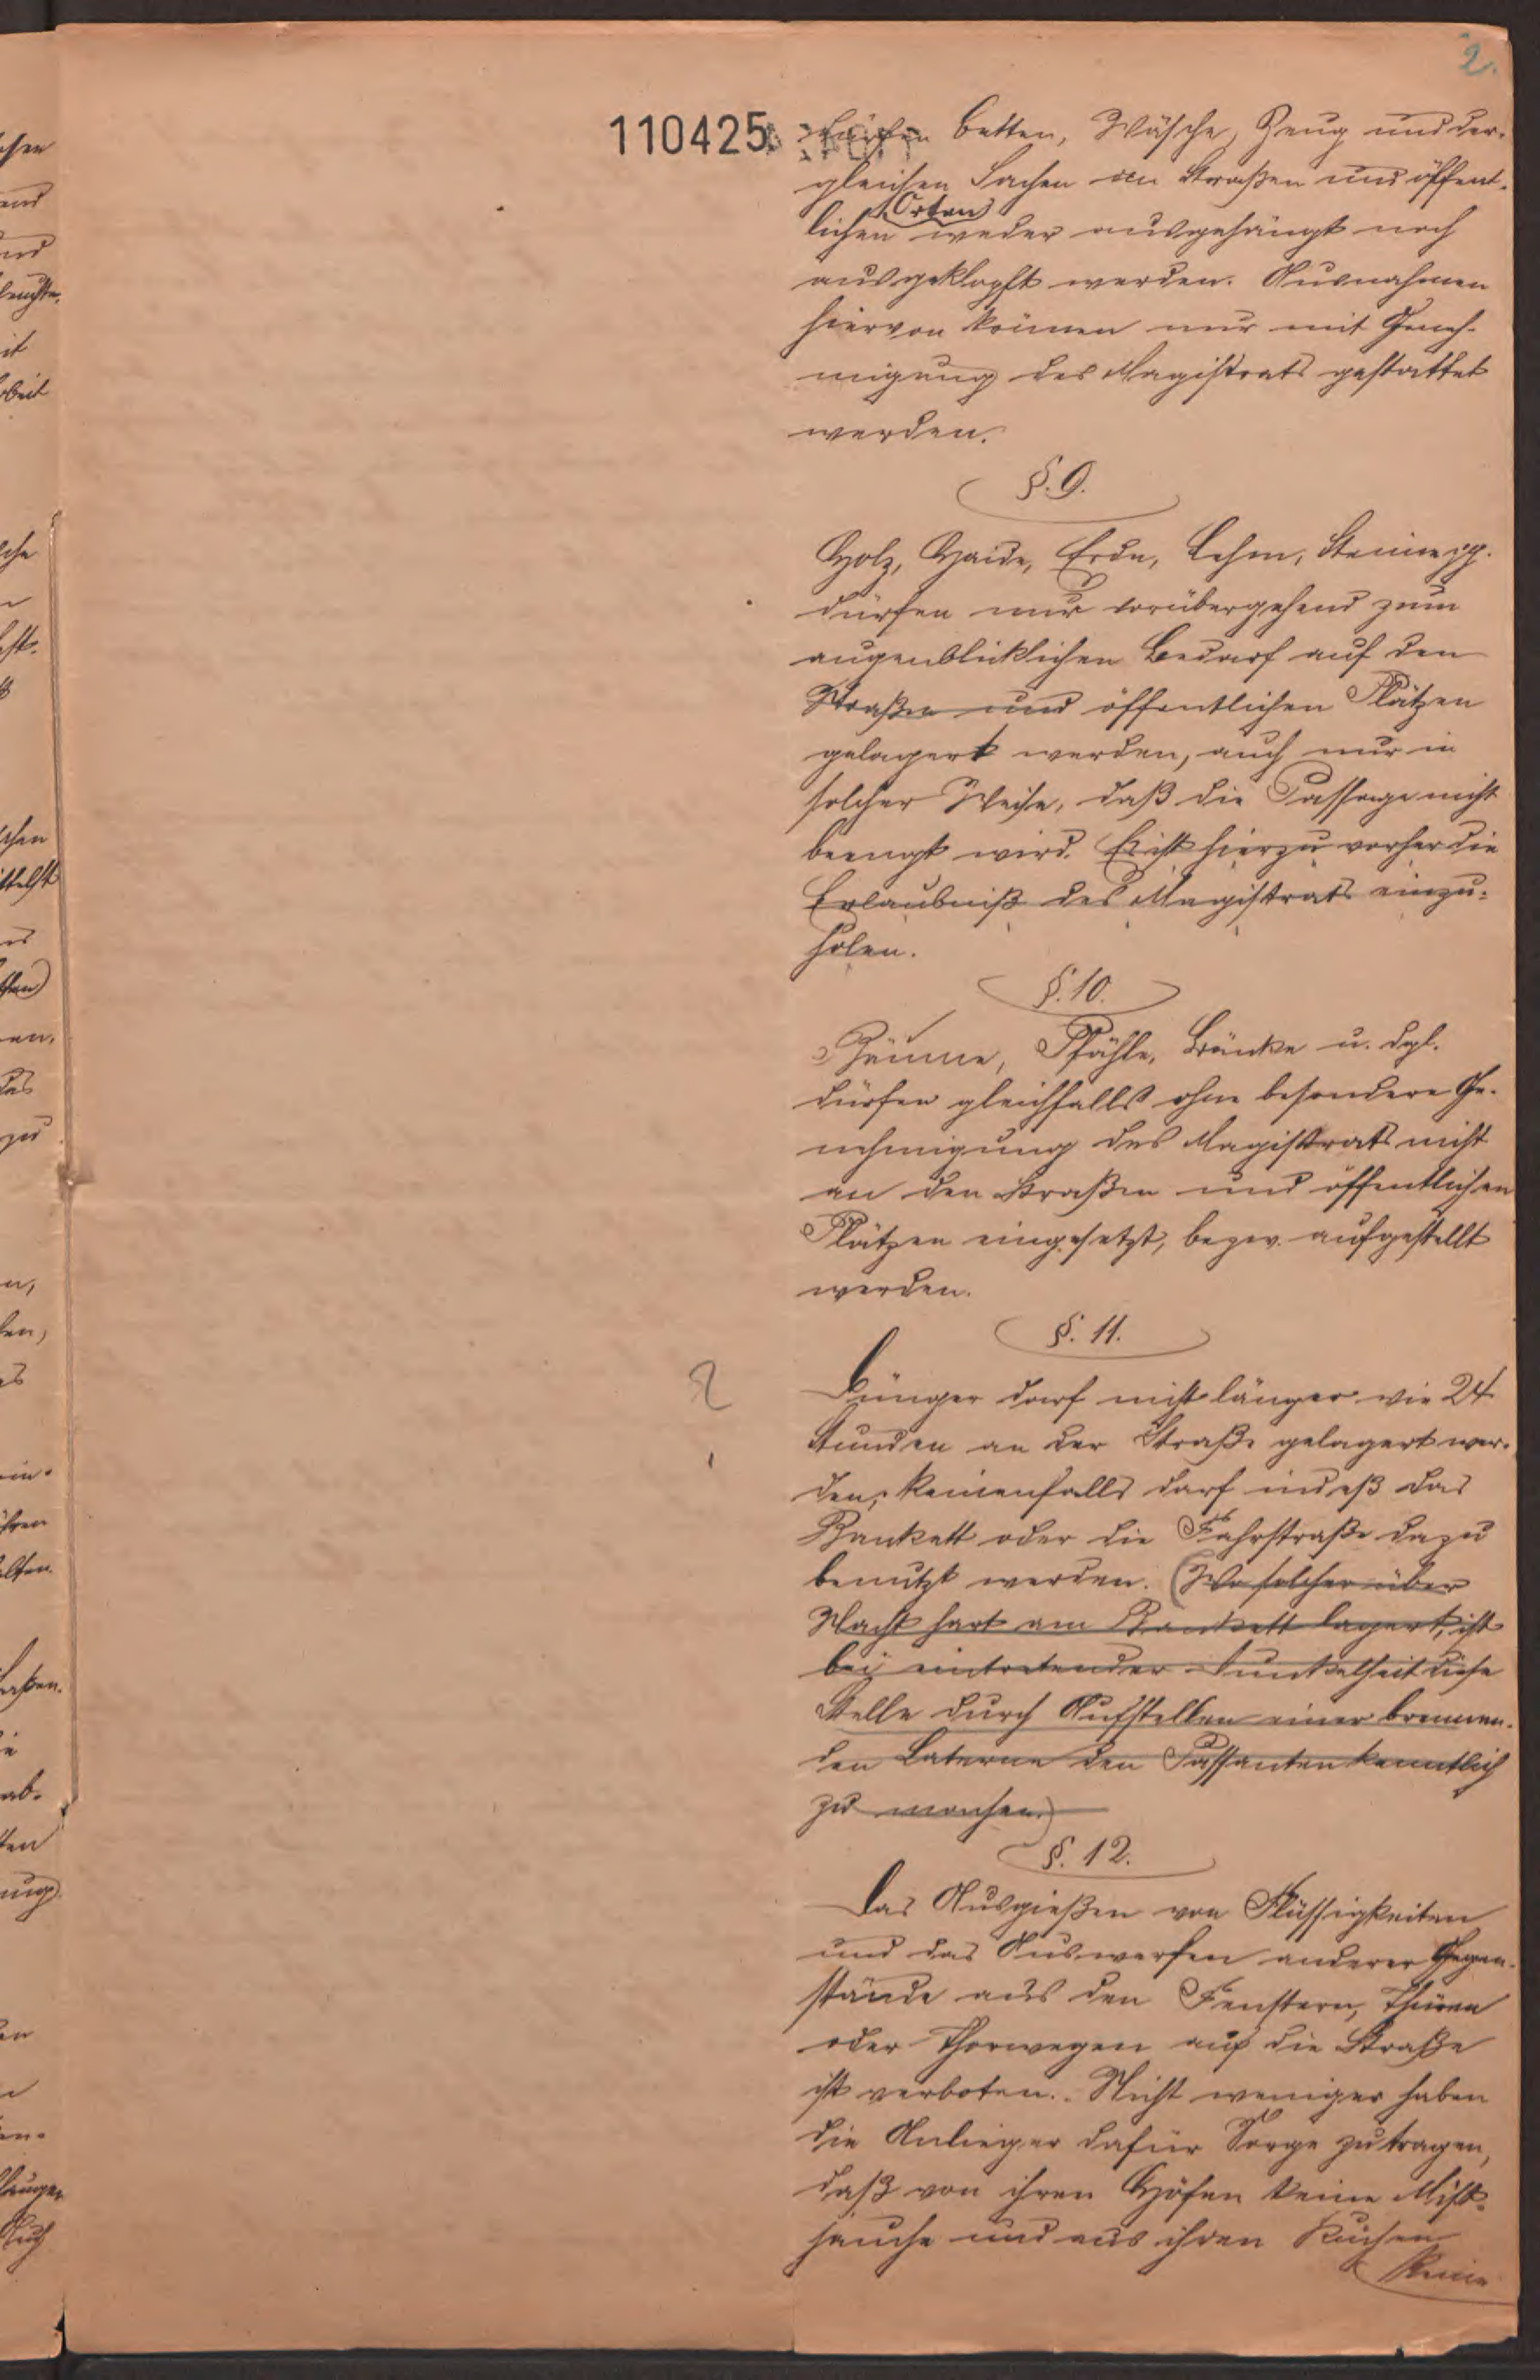 2.
110425
dürfen Betten, Wäsche, Zeug und der-
gleichen Sachen an Straßen und öffent-
Orten
lichen weder ausgehängt noch
ausgeklopft werden. Ausnahmen
hiervon können nur mit Geneh-
migung des Magistrats gestattet
werden.
§. 9.
Holz, Haide, Erde, Lehm, Steine pp.
dürfen nur vorübergehend zum
augenblicklichen Bedarf auf den
Straßen und öffentlichen Plätzen
gelagert werden, auch nur in
solcher Weise, daß die Passage nicht
beengt wird. Es ist hierzu vorher die
Erlaubniß des Magistrats einzu-
holen.
§. 10.
Zäune, Pfähle, Bänke u. dgl.
dürfen gleichfalls ohne besondere Ge-
nehmigung des Magistrats nicht
an den Straßen und öffentlichen
Plätzen eingesetzt, bezw. aufgestellt
werden.
§. 11.
Dünger darf nicht länger wie 24
Stunden an der Straße gelagert wer-
den, keinenfalls darf indeß das
Bankett oder die Fahrstraße dazu
benutzt werden. (Wo solcher über
Nacht hart am Bankett lagert, ist
bei eintretender Dunkelheit diese
Stelle durch Aufstellen einer brennen-
den Laterne den Passanten kenntlich
zu machen.)
§. 12.
Das Ausgießen von Flüssigkeiten
und das Auswerfen anderer Gegen-
stände aus den Fenstern, Thüren
oder Thorwegen auf die Straße
ist verboten. Nicht weniger haben
die Anlieger dafür Sorge zu tragen,
daß von ihren Höfen keine Mist-
jauche und aus ihren Küchen
keine